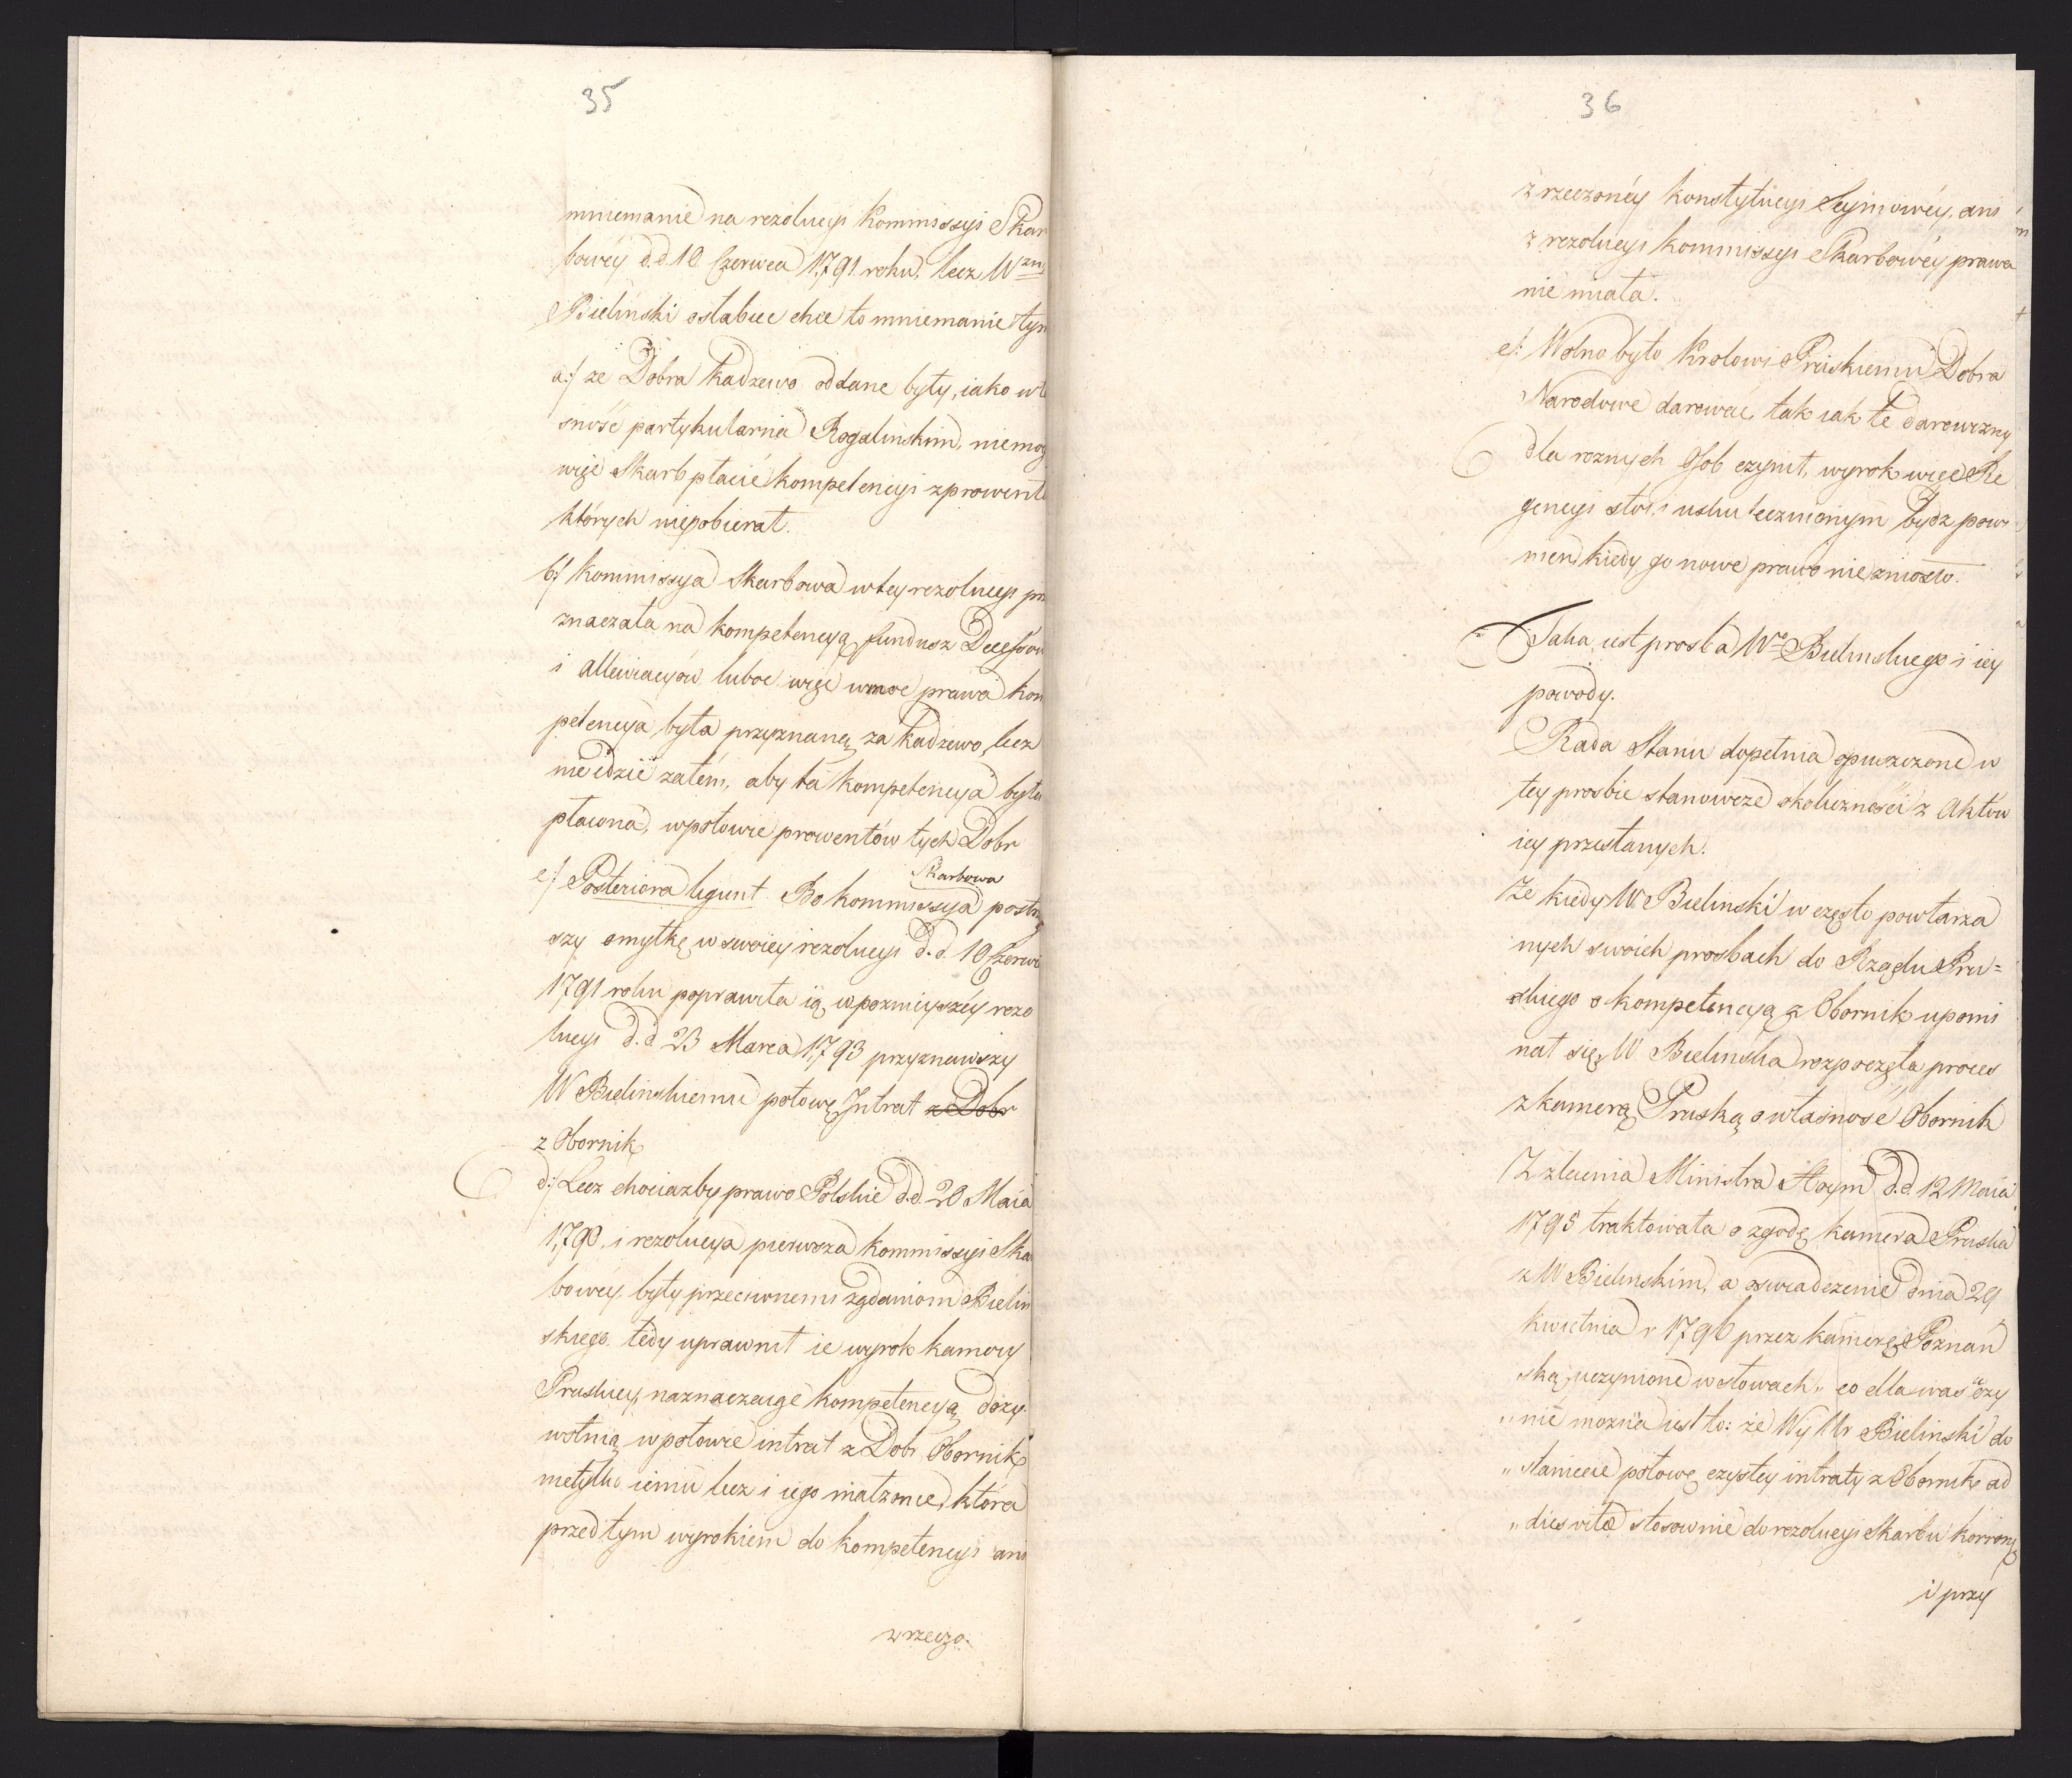 35
mniemanie na rezolucyi Kommissyi Skar
bowéy d.d 10 Czerwca 1791 roku, lecz W
Bielinski osłabiec chce to mniemanie tym
a:/ ze Dobra Kadzewo oddane były, iako wł
sność partykularna Rogalinskim, niemog
więc Skarb płacić kompetencyi z prowent
których niepobierał.
b:/ Kommissya Skarbowa w tey rezolucyi prz
znaczała na kompetencyą fundusz Decessow
i allewiacyów luboc więc w moc prawa kom
petencya była przyznaną za Kadzewo, lecz
nie idzie zatém, aby ta kompetencya była
płacona, w połowie prowentów tych Dobr
c:/ Posteriora legunt. Bo Kommissya Skarbowa postrz
szy omyłkę w swoiey rezolucyi d.d. 10 Czerwc
1791 roku poprawiła ią w poznieyszéy rezo
lucyi d.d 23 Marca 1793 przyznawszy
W Bielinskiemu połowę Intrat z Dobr
z Obornik
d:/ Lecz chociazby prawo Polskie d.d. 20 Maia
1790, i rezolucya pierwsza Kommissyi Ska
bowey, były przeciwnemi żądaniom Bielin
skiego, tedy uprawnił ie wyrok kamery
Pruskiey, naznaczaiąc kompetencyą dozy-
wotnią w połowie intrat z Dobr Obornik
nietylko iemu lecz i iego małzonce, która
przed tym wyrokiem do kompetencyi ani
z rzeczo.
36
z rzeczonéy Konstytucyi Seymowéy, ani
z rezolucyi Kommissyi Skarbowéy prawa
nie miała.
e/: Wolno było Krolowi Pruskiemu Dobra
Narodowe darować, tak iak te darowizny
dla roznych Osob czynił, wyrok więc Re
gencyi stoi, i uskutecznionym bydz powi
nien, kiedy go nowe prawo nie zniosło.
Taka iest prosba Wo Bielinskiego i iey
powody.
Rada Stanu dopełnia opuszczone w
tey prosbie stanowcze okoliczności z Aktów
iey przesłanych.
Ze kiedy W Bielinski w często powtarza
nych swoich prosbach do Rządu Pru=
skiego o kompetencyą z Obornik upomi
nał się, W Bielinska rozpoczęła proces
z kamerą Pruską o własność Obornik
Z zlecenia Ministra Hoym d.d. 12 Maia
1795 traktowała o zgodę kamera Pruska
z W Bielinskim, a oswiadczenie dnia 29
Kwietnia r 1796 przez kamerę Poznan
ską uczynione w słowach „ co dla was czy
„ nić można iest to: że Wy Mr Bielinski do
„ staniecie połowę czystey intraty z Obornik ad
„ dies vitæ stosownie do rezolucyi Skarbu Koronny
i przy